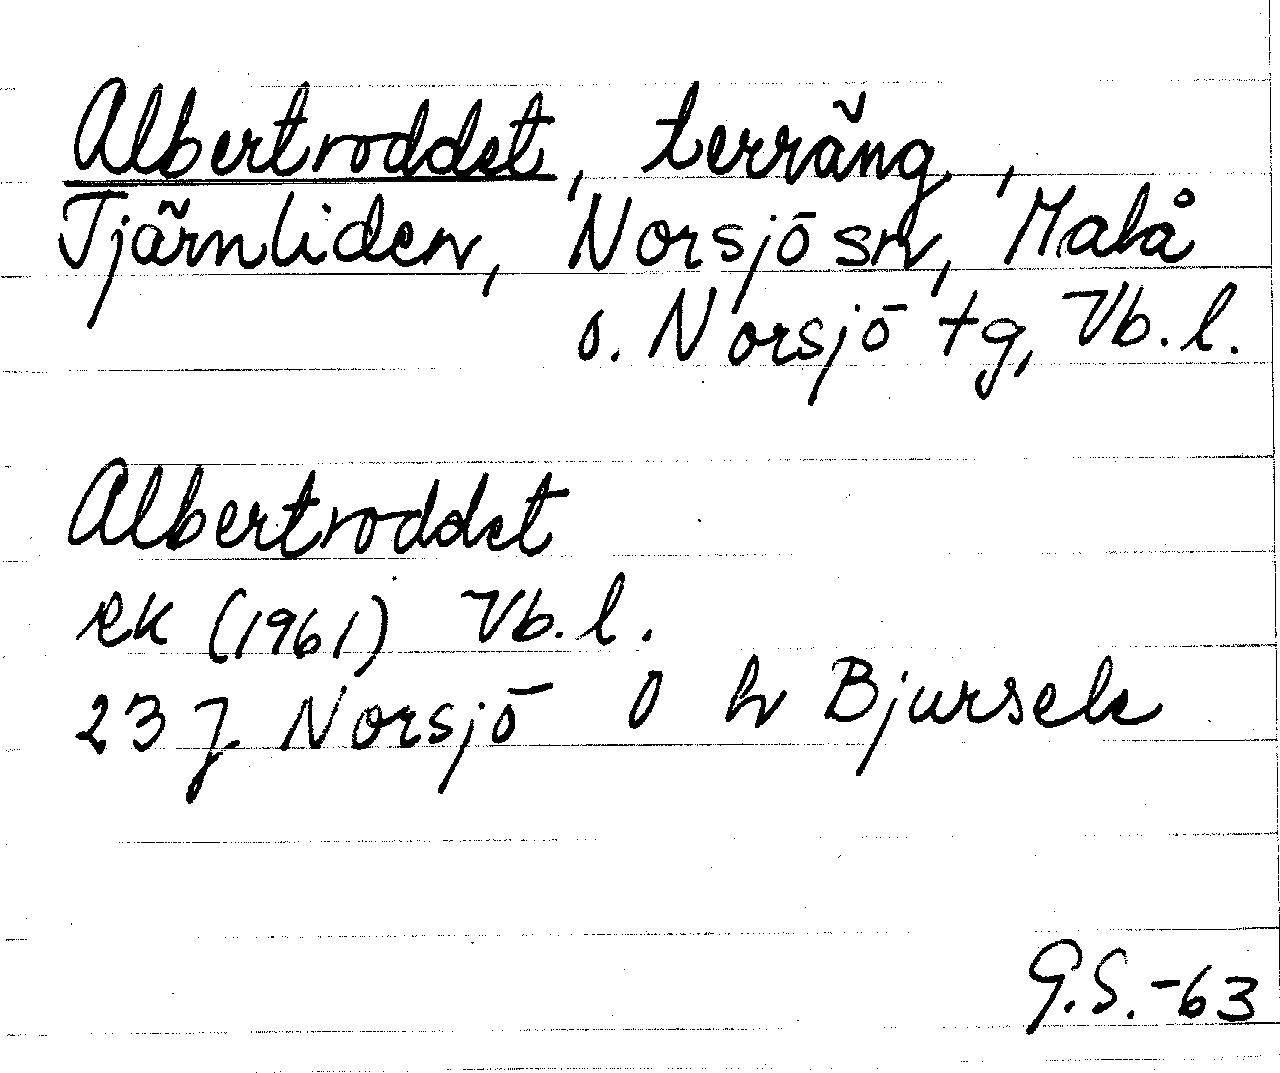 Albertroddet, terräng,
Tjärnliden, Norsjö sn, Malå
o. Norsjö tg, Vb.l.
Albertroddet
rk (1961) Vb.l.
23 J Norsjö O h Bjursele
G.S.-63